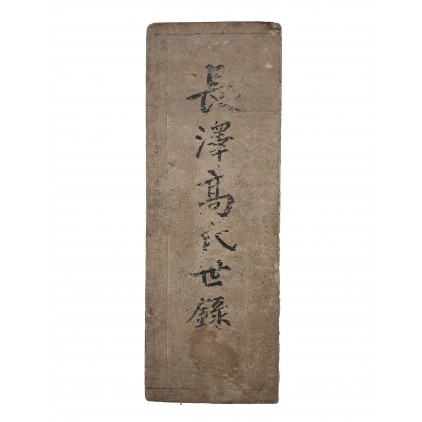 長澤髙氏世錄